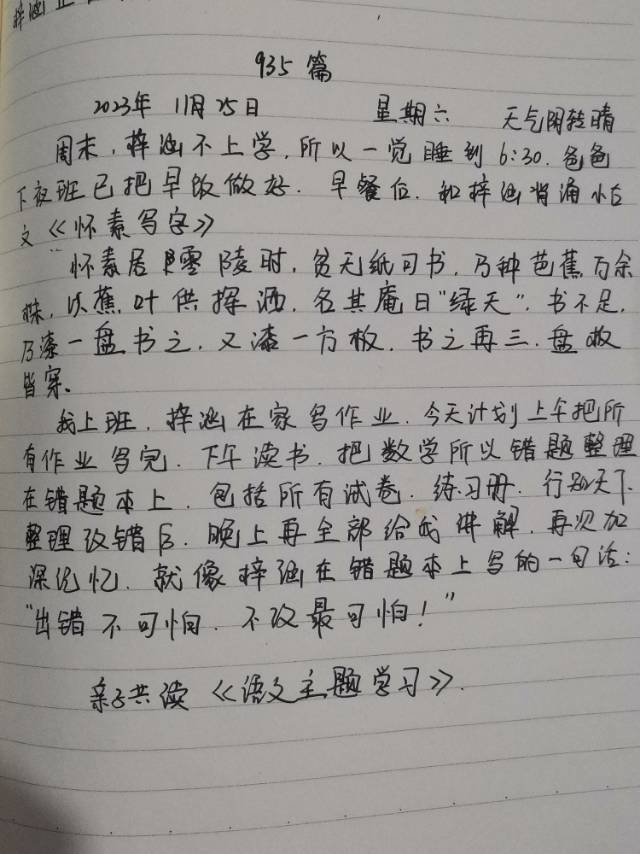 梓涵
935篇
2023年 11月25日 星期六 天气阴转晴
周末，梓涵不上学，所以一觉睡到6:30. 爸爸
下夜班已把早饭做好. 早餐后. 和梓涵背诵小古
文《怀素写字》
"怀素居零陵时，贫无纸可书，乃种芭蕉万余
株，以蕉叶供挥洒，名其庵曰"绿天". 书不足，
乃漆一盘书之，又漆一方板. 书之再三，盘板
皆穿.
我上班，梓涵在家写作业. 今天计划上午把所
有作业写完. 下午读书. 把数学所以错题整理
在错题本上. 包括所有试卷. 练习册. 行知天下.
整理改错后. 晚上再全部给我讲解，再次加
深记忆. 就像梓涵在错题本上写的一句话:
"出错不可怕. 不改最可怕!"
亲子共读《语文主题学习》.